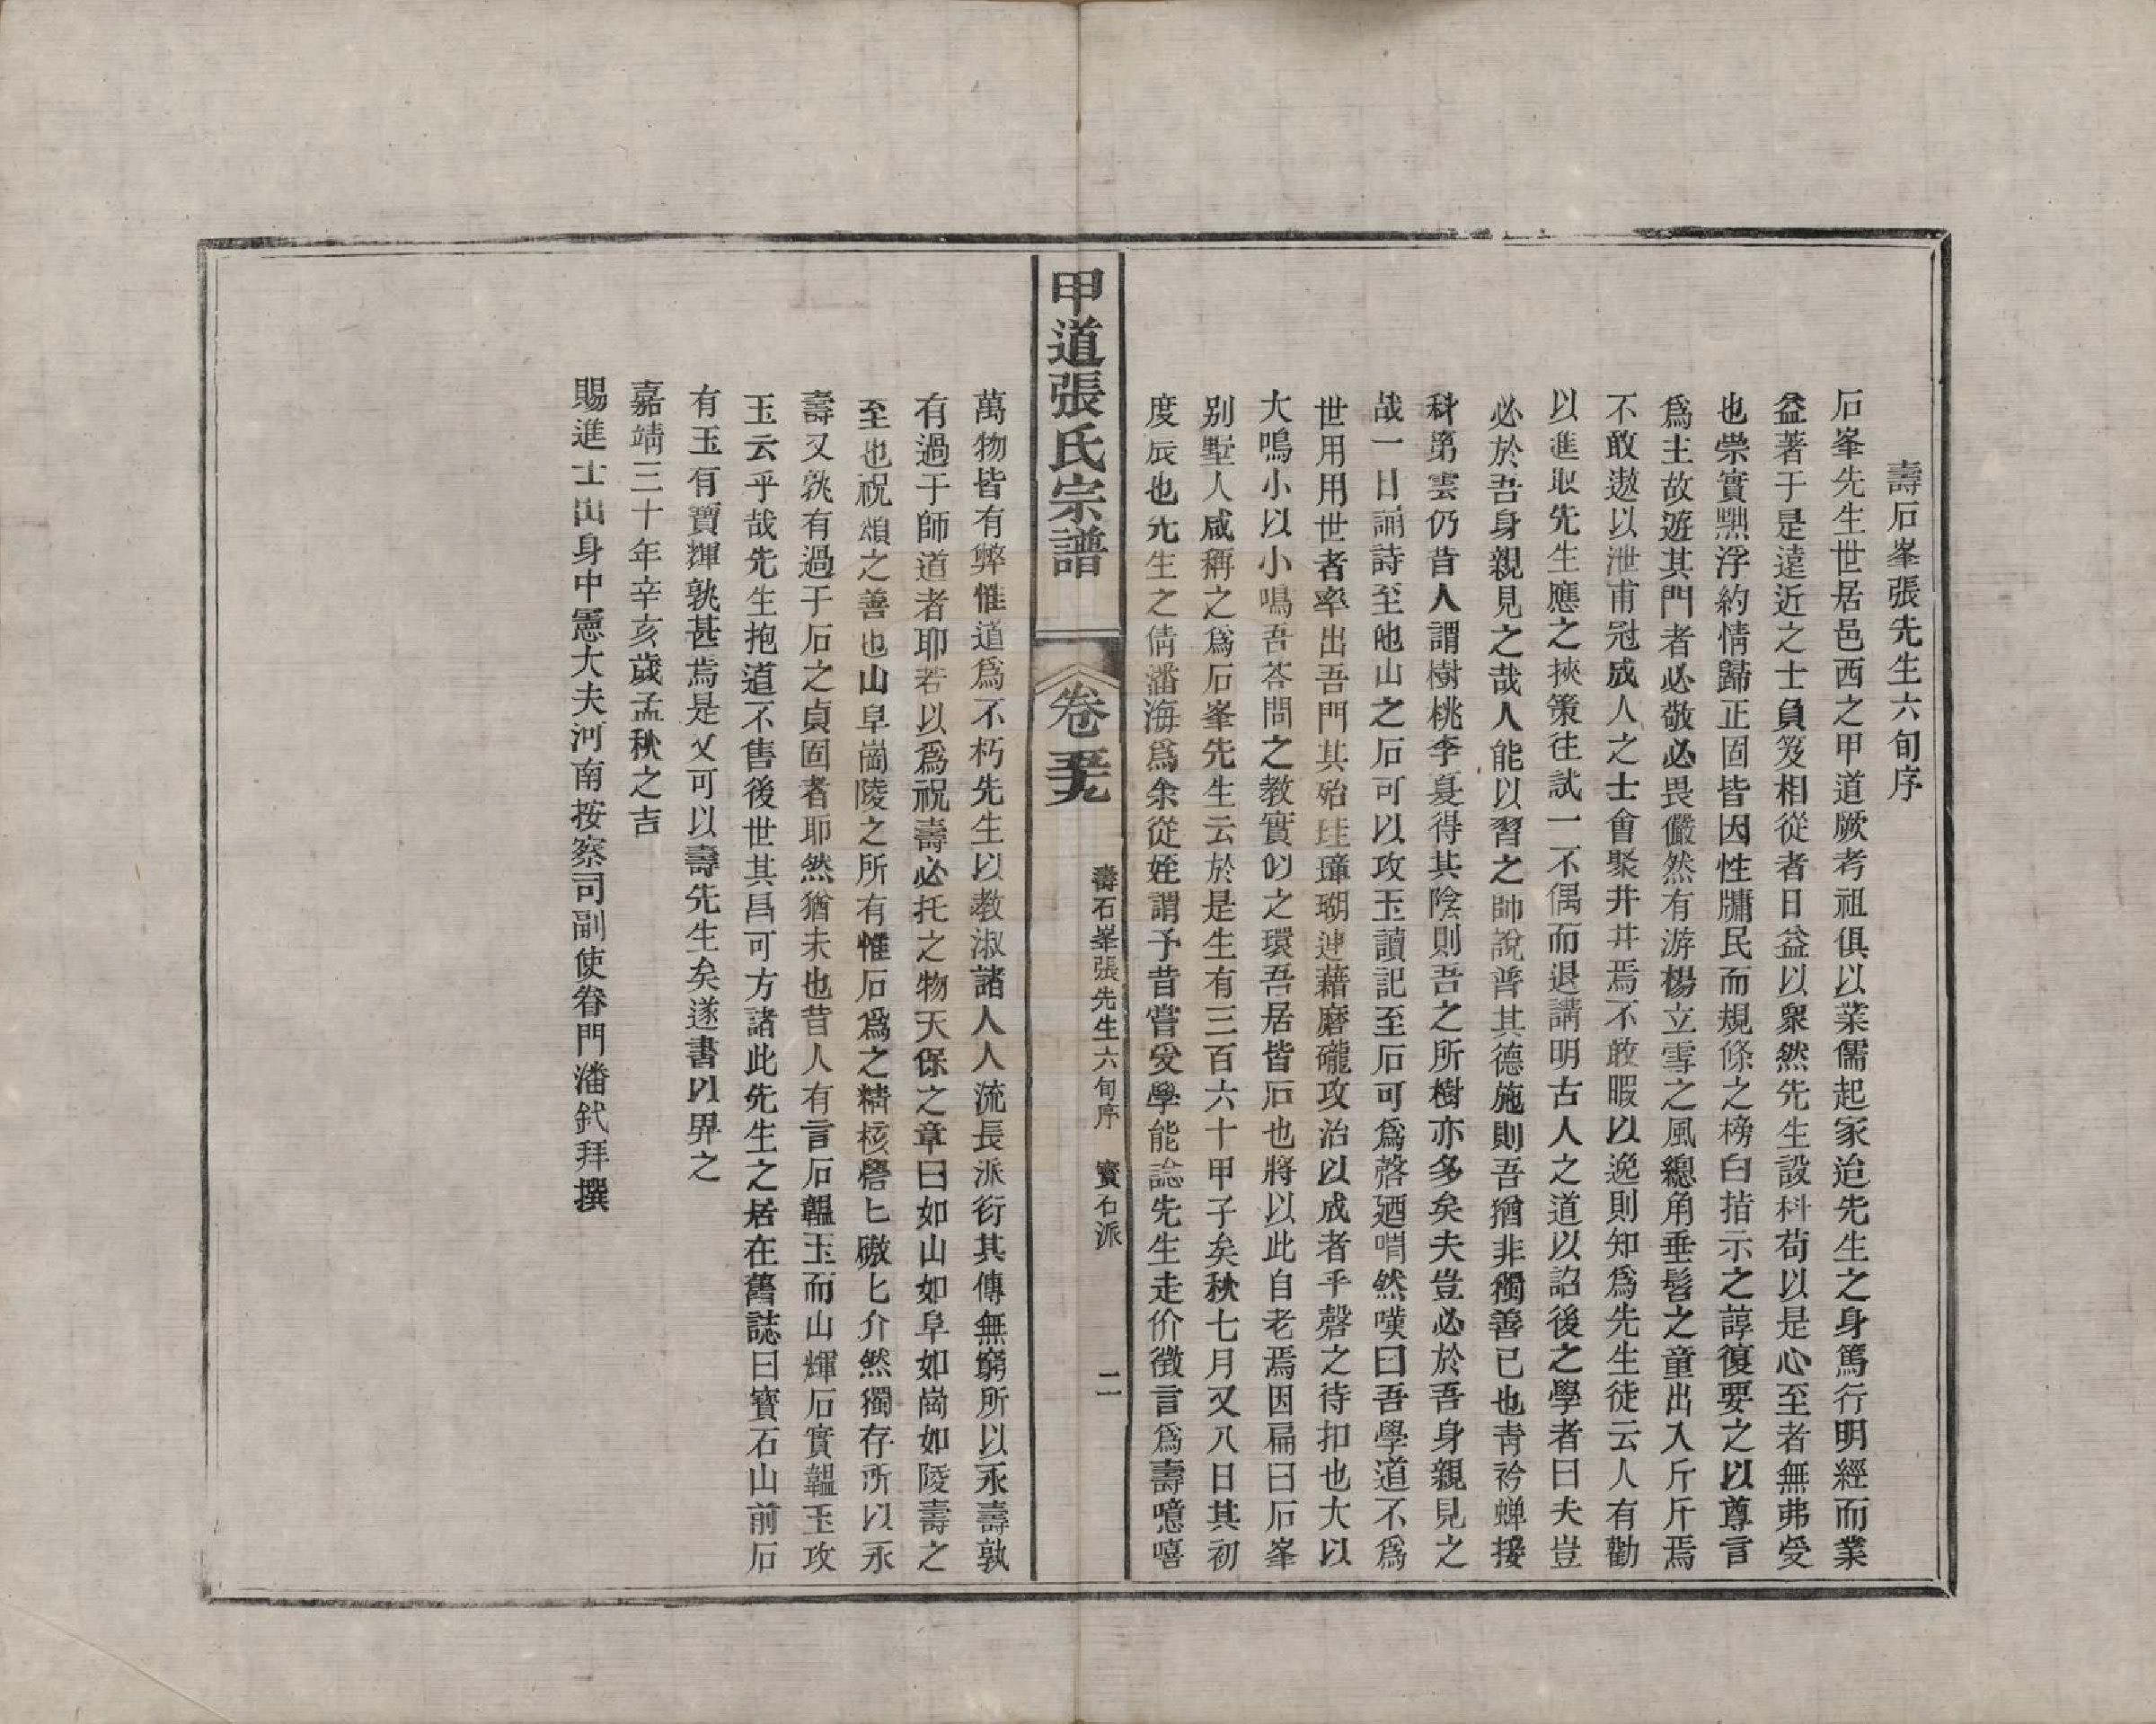 壽石峯張先生六旬序
石峯先生世居邑西之甲道厥考祖俱以業儒起家迨先生之身篤行明經而業
益著于是遠近之士負笈相從者日益以衆然先生設科苟以是心至者無弗受
也崇實黜浮約情歸正固皆因性牖民而規條之榜白掿示之諄復要之以尊言
爲主故遊其門者必敬必畏儼然有游楊立雪之風總角垂髫之童出入斤斤焉
不敢遨以泄甫冠成人之士會聚井井焉不敢暇以逸則知爲先生徒云人有勸
以進取先生應之挾策往試一不偶而退講明古人之道以詔後之學者曰夫豈
必於吾身親見之哉人能以習之師說普其德施則吾猶非獨善已也靑衿蟬接
科第雲仍昔人謂樹桃李夏得其陰則吾之所樹亦多矣夫豈必於吾身親見之
哉一日誦詩至他山之石可以攻玉讀記至石可爲磬廼喟然嘆曰吾學道不爲
世用用世者率出吾門其殆珪璋瑚璉藉磨礲攻治以成者乎磬之待扣也大以
大鳴小以小鳴吾荅問之教實似之環吾居皆石也將以此自老焉因扁曰石峯
別墅人咸稱之爲石峯先生云於是生有三百六十甲子矣秋七月又八日其初
度辰也先生之倩潘海爲余從姪謂予昔嘗受學能諗先生走价徵言爲壽噫嘻
甲道張氏宗譜
卷五十九
壽石峯張先生六旬序 寶石派
二
萬物皆有弊惟道爲不朽先生以教淑諸人人流長派衍其傳無窮所以永壽孰
有過于師道者耶若以爲祝壽必托之物天保之章曰如山如阜如崗如陵壽之
至也祝頌之善也山阜崗陵之所有惟石爲之精核礐匕磝匕介然獨存所以永
壽又孰有過于石之貞固者耶然猶未也昔人有言石韞玉而山輝石實韞玉攻
玉云乎哉先生抱道不售後世其昌可方諸此先生之居在舊誌曰寶石山前石
有玉有寶輝孰甚焉是又可以壽先生矣遂書以畀之
嘉靖三十年辛亥歲孟秋之吉
賜進士出身中憲大夫河南按察司副使眷門潘鈛拜撰